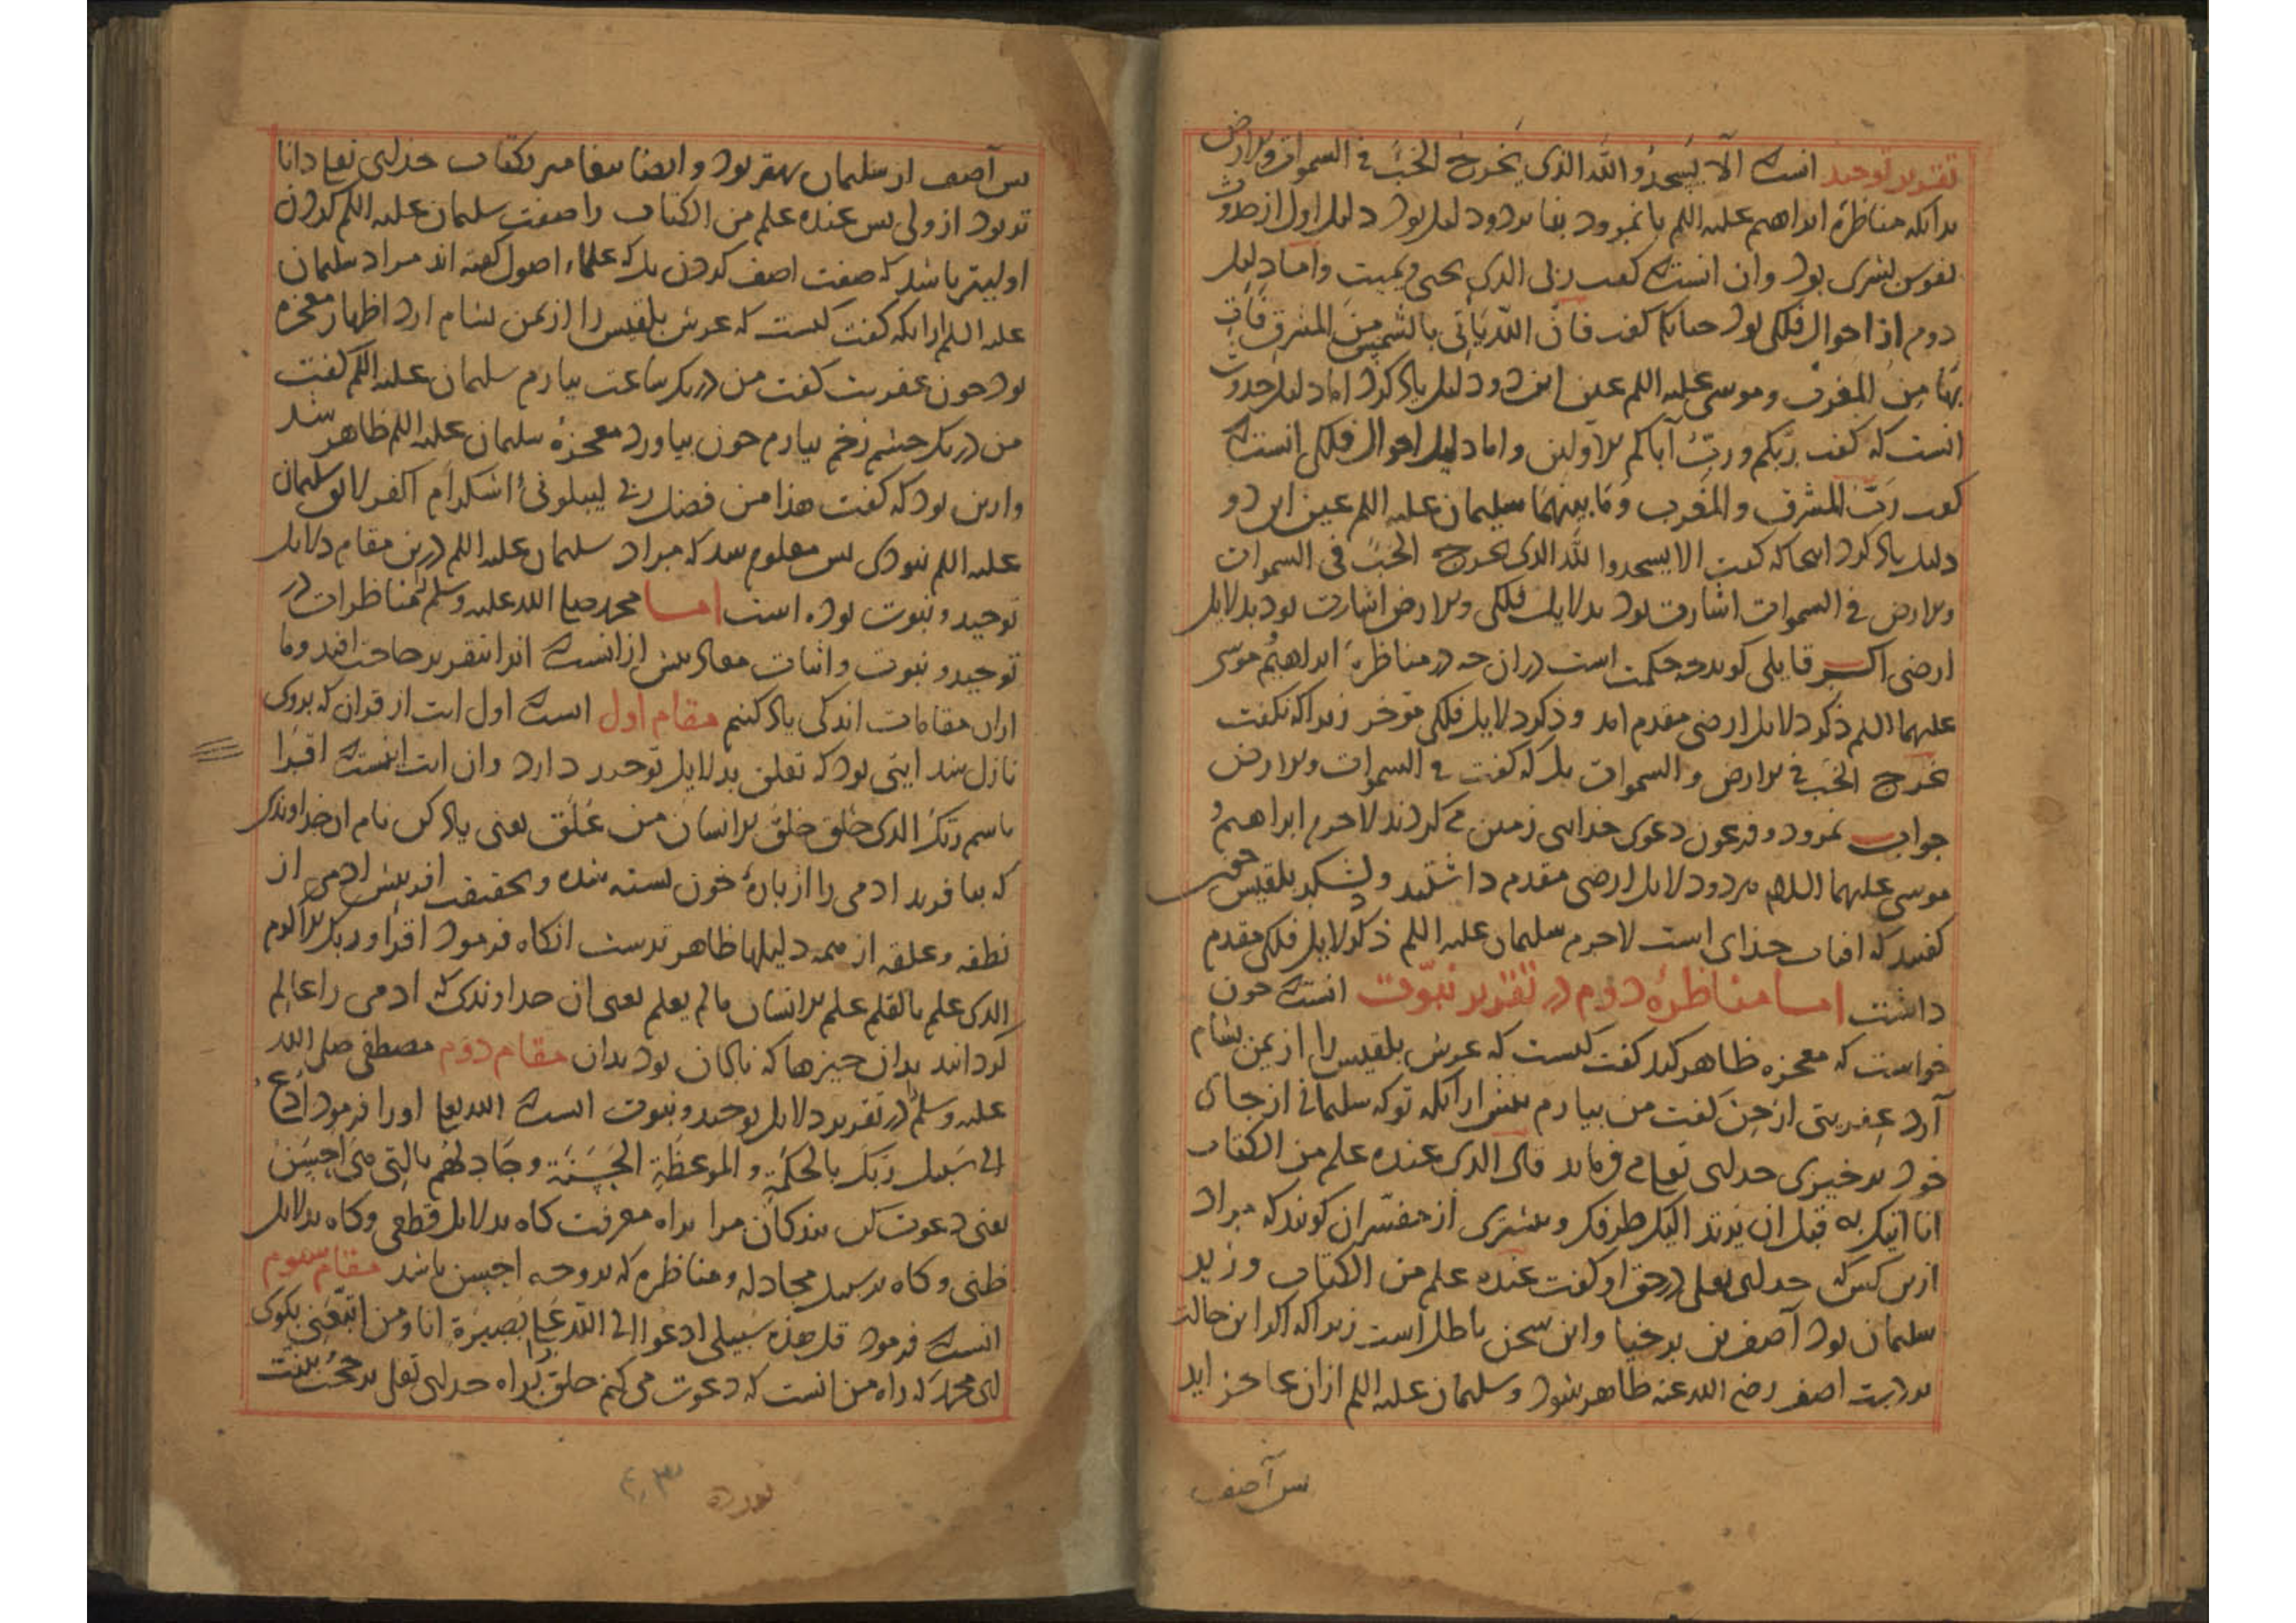 تقریر توحید انست الّا یَسجدُو الله الذی یخرج الخبَ فی السموات والارض
بدانکه مناظرهٔ ابراهیم علیه السلم با نمرود بنا بر دو دلیل بود دلیل اول از حدوث
نفوس بشری بود وان انست که گفت ربی الذی یحیی ویمیت واما دلیل
دوم از احوال فلکی بود چنانکه گفت فان اللّه یَاتِی بالشمس منَ المشرق فَاتِ
بهَا مِنَ المغرب و موسی علیه السلم عین این دو دلیل یاد کرد اما دلیل حدوث
انست که گفت ربّکم وربّ آبائکم الاولین واما دلیل احوال فلکی انست که
گفت رَبّ المشرق والمَغرب وَمَا بینهمَا سلیمان علیه السلم عین این دو
دلیل یاد کرد انجا که گفت الا یسجدوا للّه الذی یخرج الخبَ فی السموات
والارض فی السموات اشارت بود بدلایل فلکی والارض اشارت بود بدلایل
ارضی اکر قایلی کوید چه حکمت است دران چه در مناظرهٔ ابراهیم و موسی
علیهما السلم ذکر دلایل ارضی مقدم امد و ذکر دلایل فلکی موخر زیرا که نکفت
یخرج الخبَ فی الارض و السموات بل که کفت فی السموات والارض
جواب نمرود و فرعون دعوی خدایی زمین می کردند لاجرم ابراهیم و
موسی علیهما السلام هر دو دلایل ارضی مقدم داشتند و لشکر بلقیس چون
کفتند که افتاب خدای است لاجرم سلیمان علیه السلم ذکر دلایل فلکی مقدم
داشت اما مناظرهٔ دوم در تقریر نبوّت انست که چون
خواست که معجزه ظاهر کند کفت کیست که عرش بلقیس را از یمن بشام
آرد عِفریتی از جِن کفت من بیارم پیش ازانکه تو که سلیمانی از جای
خود برخیزی خدای تعالی می فرماید قال الذی عنده علم من الکتاب
انا اتیک به قبل ان یَرتد الیک طرفک و بیشتری از مفسّران کویند که مراد
ازین کس که خدای تعالی در حق او کفت عنده علم من الکتاب وزیر
سلیمان بود آصف بن برخیا واین سخن باطل است زیرا که اکر این حالت
بر دست اصف رضی الله عنه ظاهر شود و سلیمان علیه السلم ازان عاجز اید
پس آصف
پس آصف از سلیمان بهتر بود و ایضا پیغامبر بکتاب خدای تعالی دانا
تر بود از ولی پس عنده علم من الکتاب را صفت سلیمان علیه السلم کردن
اولیتر باشد که صفت اصف کردن بل که علماء اصول کفته اند مراد سلیمان
علیه السلم ازانکه کفت کیست که عرش بلقیس را از یمن بشام ارد اظهار معجزه
بود چون عفریت کفت من در یک ساعت بیارم سلیمان علیه السلم کفت
من در یک چشم زخم بیارم چون بیاورد معجزهٔ سلیمان علیه السلم ظاهر شد
وازین بود که کفت هذا من فضل ربی لیبلونی ءاشکر ام اکفر لایق سلیمان
علیه السلم نبودی پس معلوم شد که مراد سلیمان علیه السلم درین مقام دلایل
توحید و نبوت بوده است اما محمد صلی الله علیه وسلم مناظرات در
توحید و نبوت واثبات معاد بیش ازانست که انرا بتقریر حاجت افتد وما
ازان مقامات اندکی یاد کنیم مقام اول انست که اول ایت از قران که بروی
نازل شد ایتی بود که تعلق بدلایل توحید دارد وان ایت اینست که اقرا
باسم ربّک الذی خلق خلق الانسان من عَلَق یعنی یاد کن نام ان خداوندی
که بیافرید ادمی را از پارهٔ خون بسته شده و بحقیقت افرینش ادمی از
نطفه و علقه از همه دلیلها ظاهر ترست انکاه فرمود اقرأ وربک الاکرم
الذی علم بالقلم علم الانسان مالم یعلم یعنی ان خداوندی که ادمی را عالِم
کرداند بدان چیزها که نادان بود بدان مقام دوم مصطفی صلی الله
علیه وسلم در تقریر دلایل توحید و نبوت انست که الله تعالی اورا فرمود اُدعُ
الی سَبیل ربّکَ بالحکمَة و المَوعظَةِ الحَسَنَة وجَادِلهُم بالتِی هیَ احسَن
یعنی دعوت کن بندکان مرا براه معرفت کاه بدلایل قطعی وکاه بدلایل
ظنی وکاه بر سبیل مجادله و مناظره که بر وجه احسن باشد مقام سوم
انست که فرمود قل هذه سَبیلی ادعُوا الی اللّه عَلی بَصیرَة انا ومن اتّبعَنِی بکوی
ای محمد که راه من انست که دعوت می کنم خلق را براه خدای تعالی بر حجت بینت
۴۰۳